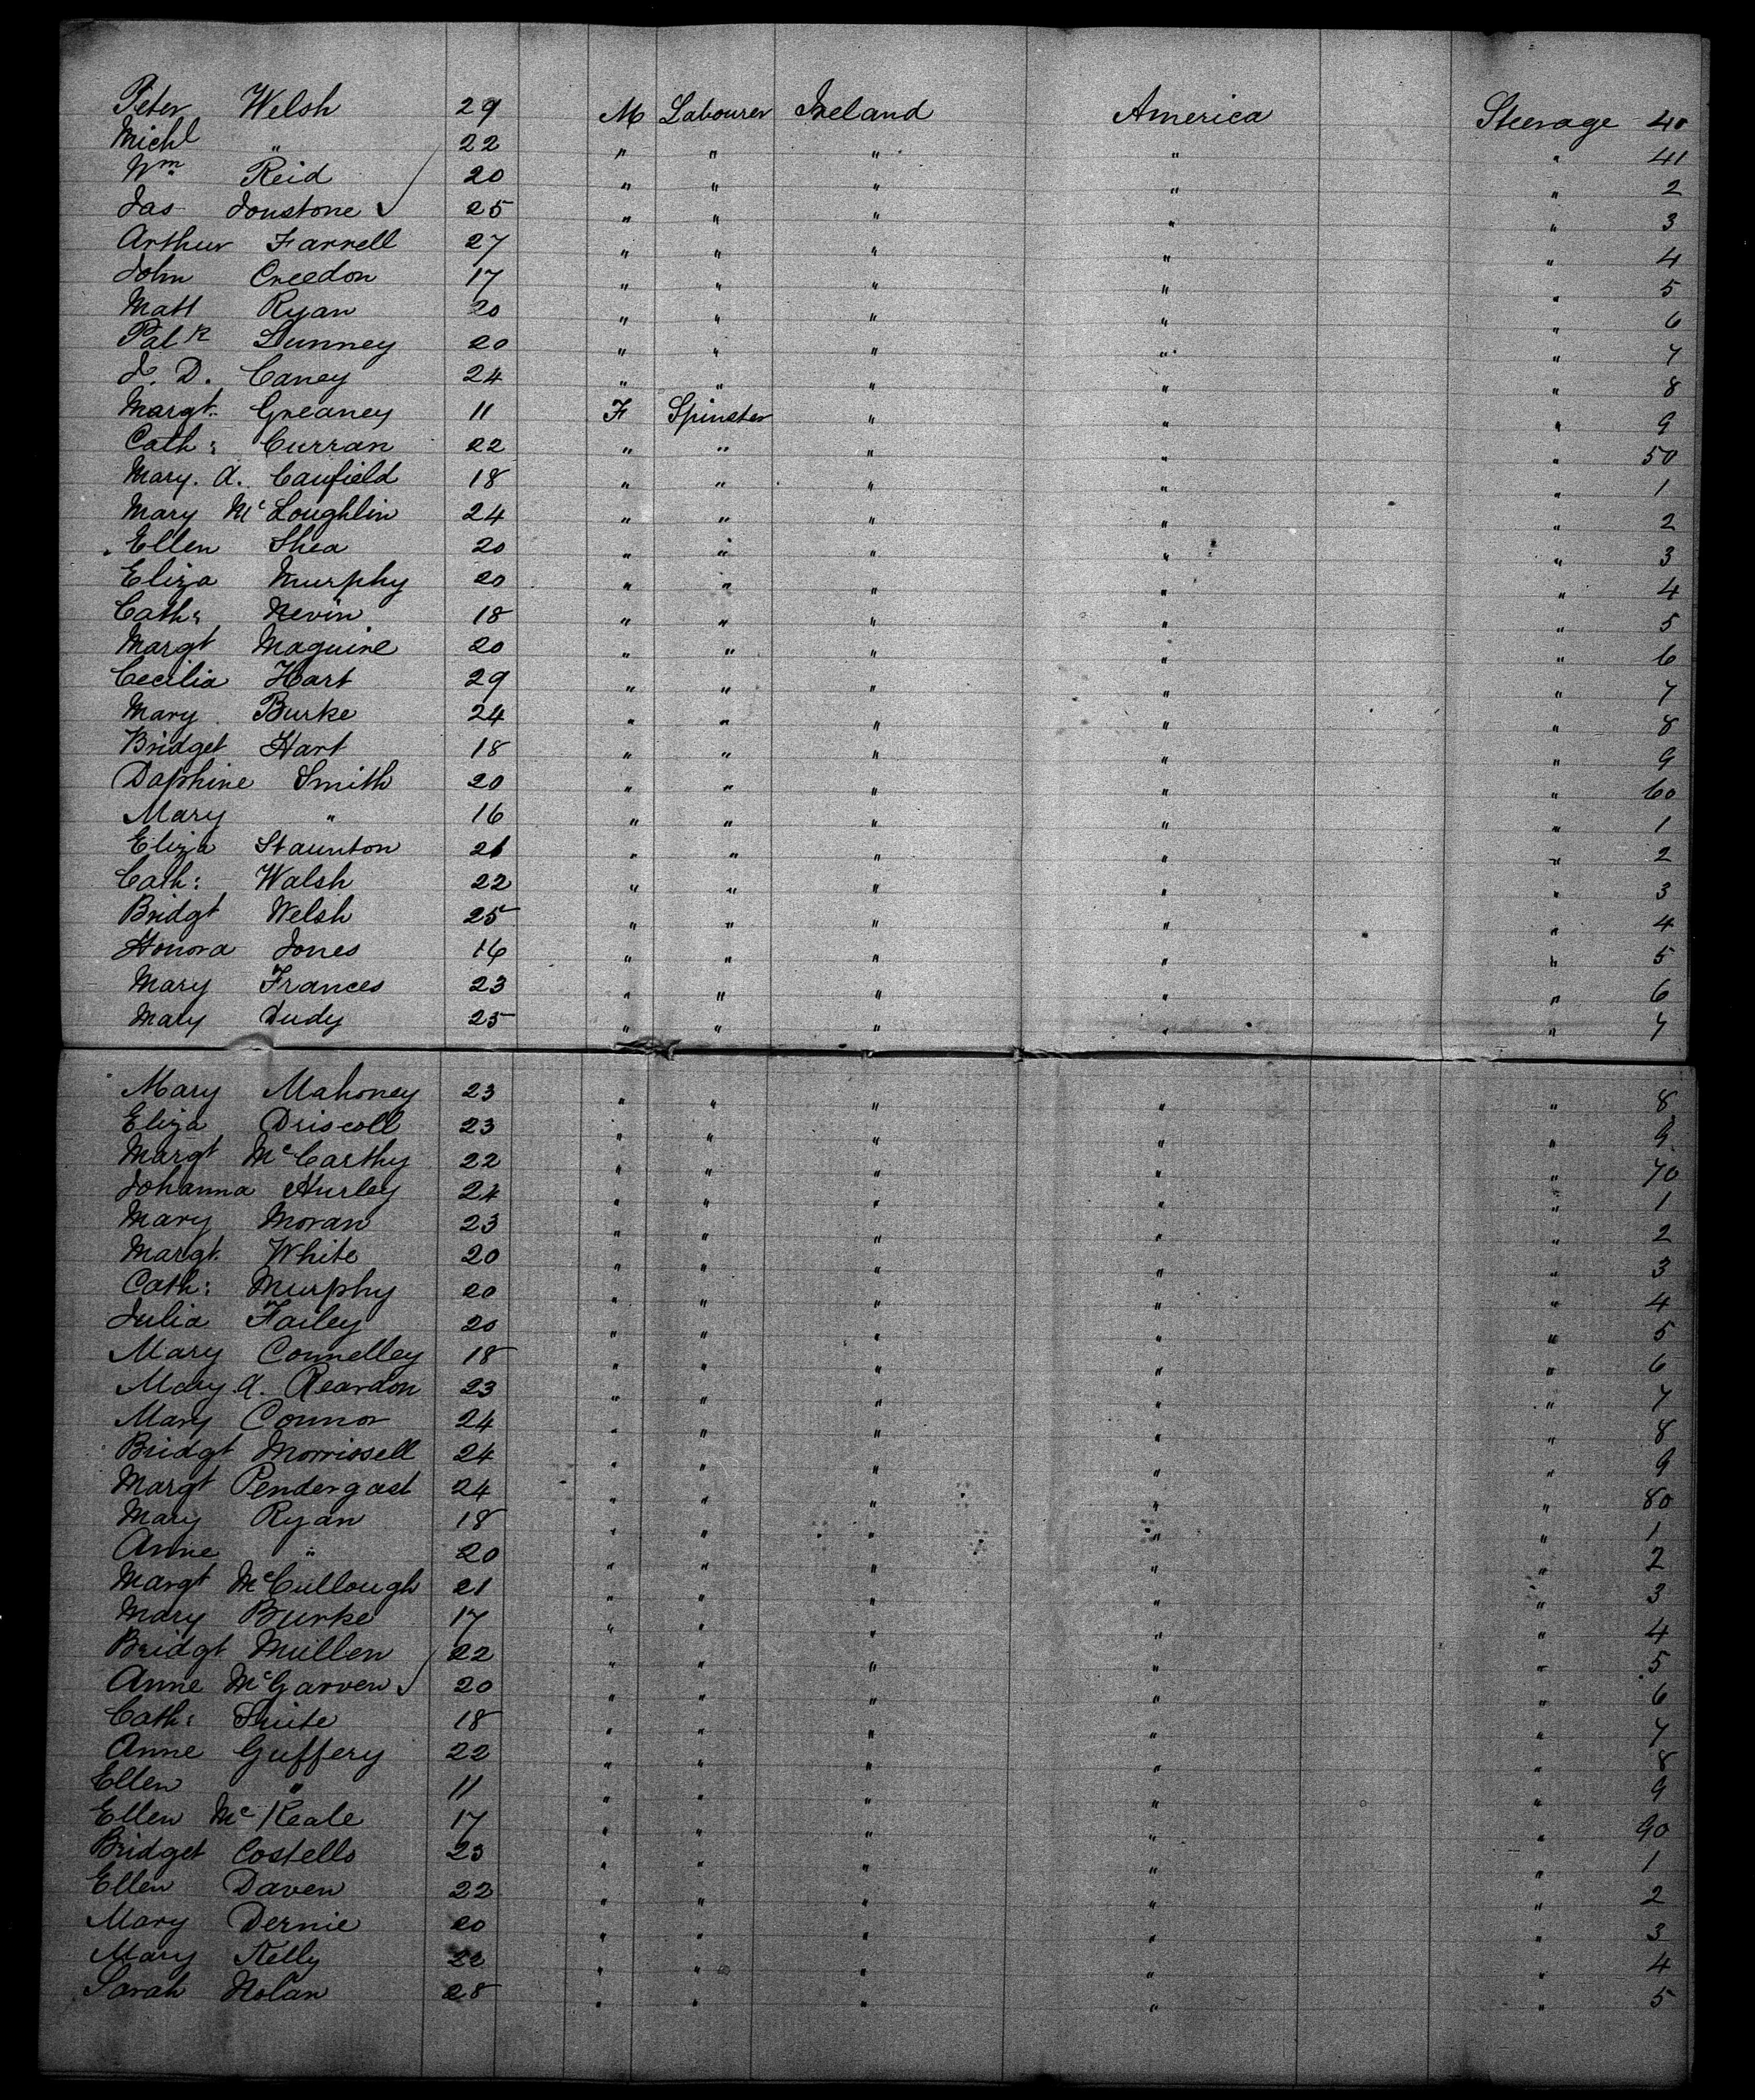 Peter Welsh 29 M Labourer Ireland America Steerage 40
Michl " 22 " " " " " 41
Wm Reid 20 " " " " " 2
Jas Jonstone 25 " " " " " 3
Arthur Farrell 27 " " " " " 4
John Creedon 17 " " " " " 5
Matt Ryan 20 " " " " " 6
Patk Dunney 20 " " " " " 7
J. D. Caney 24 " " " " " 8
Margt Greaney 11 F Spinster " " " 9
Cath: Curran 22 " " " " " 50
Mary. A. Caufield 18 " " " " " 1
Mary McLoughlin 24 " " " " " 2
Ellen Shea 20 " " " " " 3
Eliza Murphy 20 " " " " " 4
Cath: Nevin 18 " " " " " 5
Margt Maguire 20 " " " " " 6
Cecilia Hart 29 " " " " " 7
Mary Burke 24 " " " " " 8
Bridget Hart 18 " " " " " 9
Daphine Smith 20 " " " " " 60
Mary " 16 " " " " " 1
Eliza Staunton 21 " " " " " 2
Cath: Walsh 22 " " " " " 3
Bridgt Welsh 25 " " " " " 4
Honora Jones 16 " " " " " 5
Mary Frances 23 " " " " " 6
Mary Dudy 25 " " " " " 7
Mary Mahoney 23 " " " " " 8
Eliza Driscoll 23 " " " " " 9
Margt McCarthy 22 " " " " " 70
Johanna Hurley 24 " " " " " 1
Mary Moran 23 " " " " " 2
Margt White 20 " " " " " 3
Cath: Murphy 20 " " " " " 4
Julia Failey 20 " " " " " 5
Mary Connelley 18 " " " " " 6
Mary A. Reardon 23 " " " " " 7
Mary Connor 24 " " " " " 8
Bridgt Morrissell 24 " " " " " 9
Margt Pendergast 24 " " " " " 80
Mary Ryan 18 " " " " " 1
Anne " 20 " " " " " 2
Margt McCullough 21 " " " " " 3
Mary Burke 17 " " " " " 4
Bridgt Mullen 22 " " " " " 5
Anne McGarven 20 " " " " " 6
Cath: 18 " " " " " 7
Anne Guffery 22 " " " " " 8
Ellen " 11 " " " " " 9
Ellen McKeale 17 " " " " " 90
Bridget Costello 23 " " " " " 1
Ellen Daven 22 " " " " " 2
Mary Dernie 20 " " " " " 3
Mary Kelly 22 " " " " " 4
Sarah Nolan 28 " " " " " 5